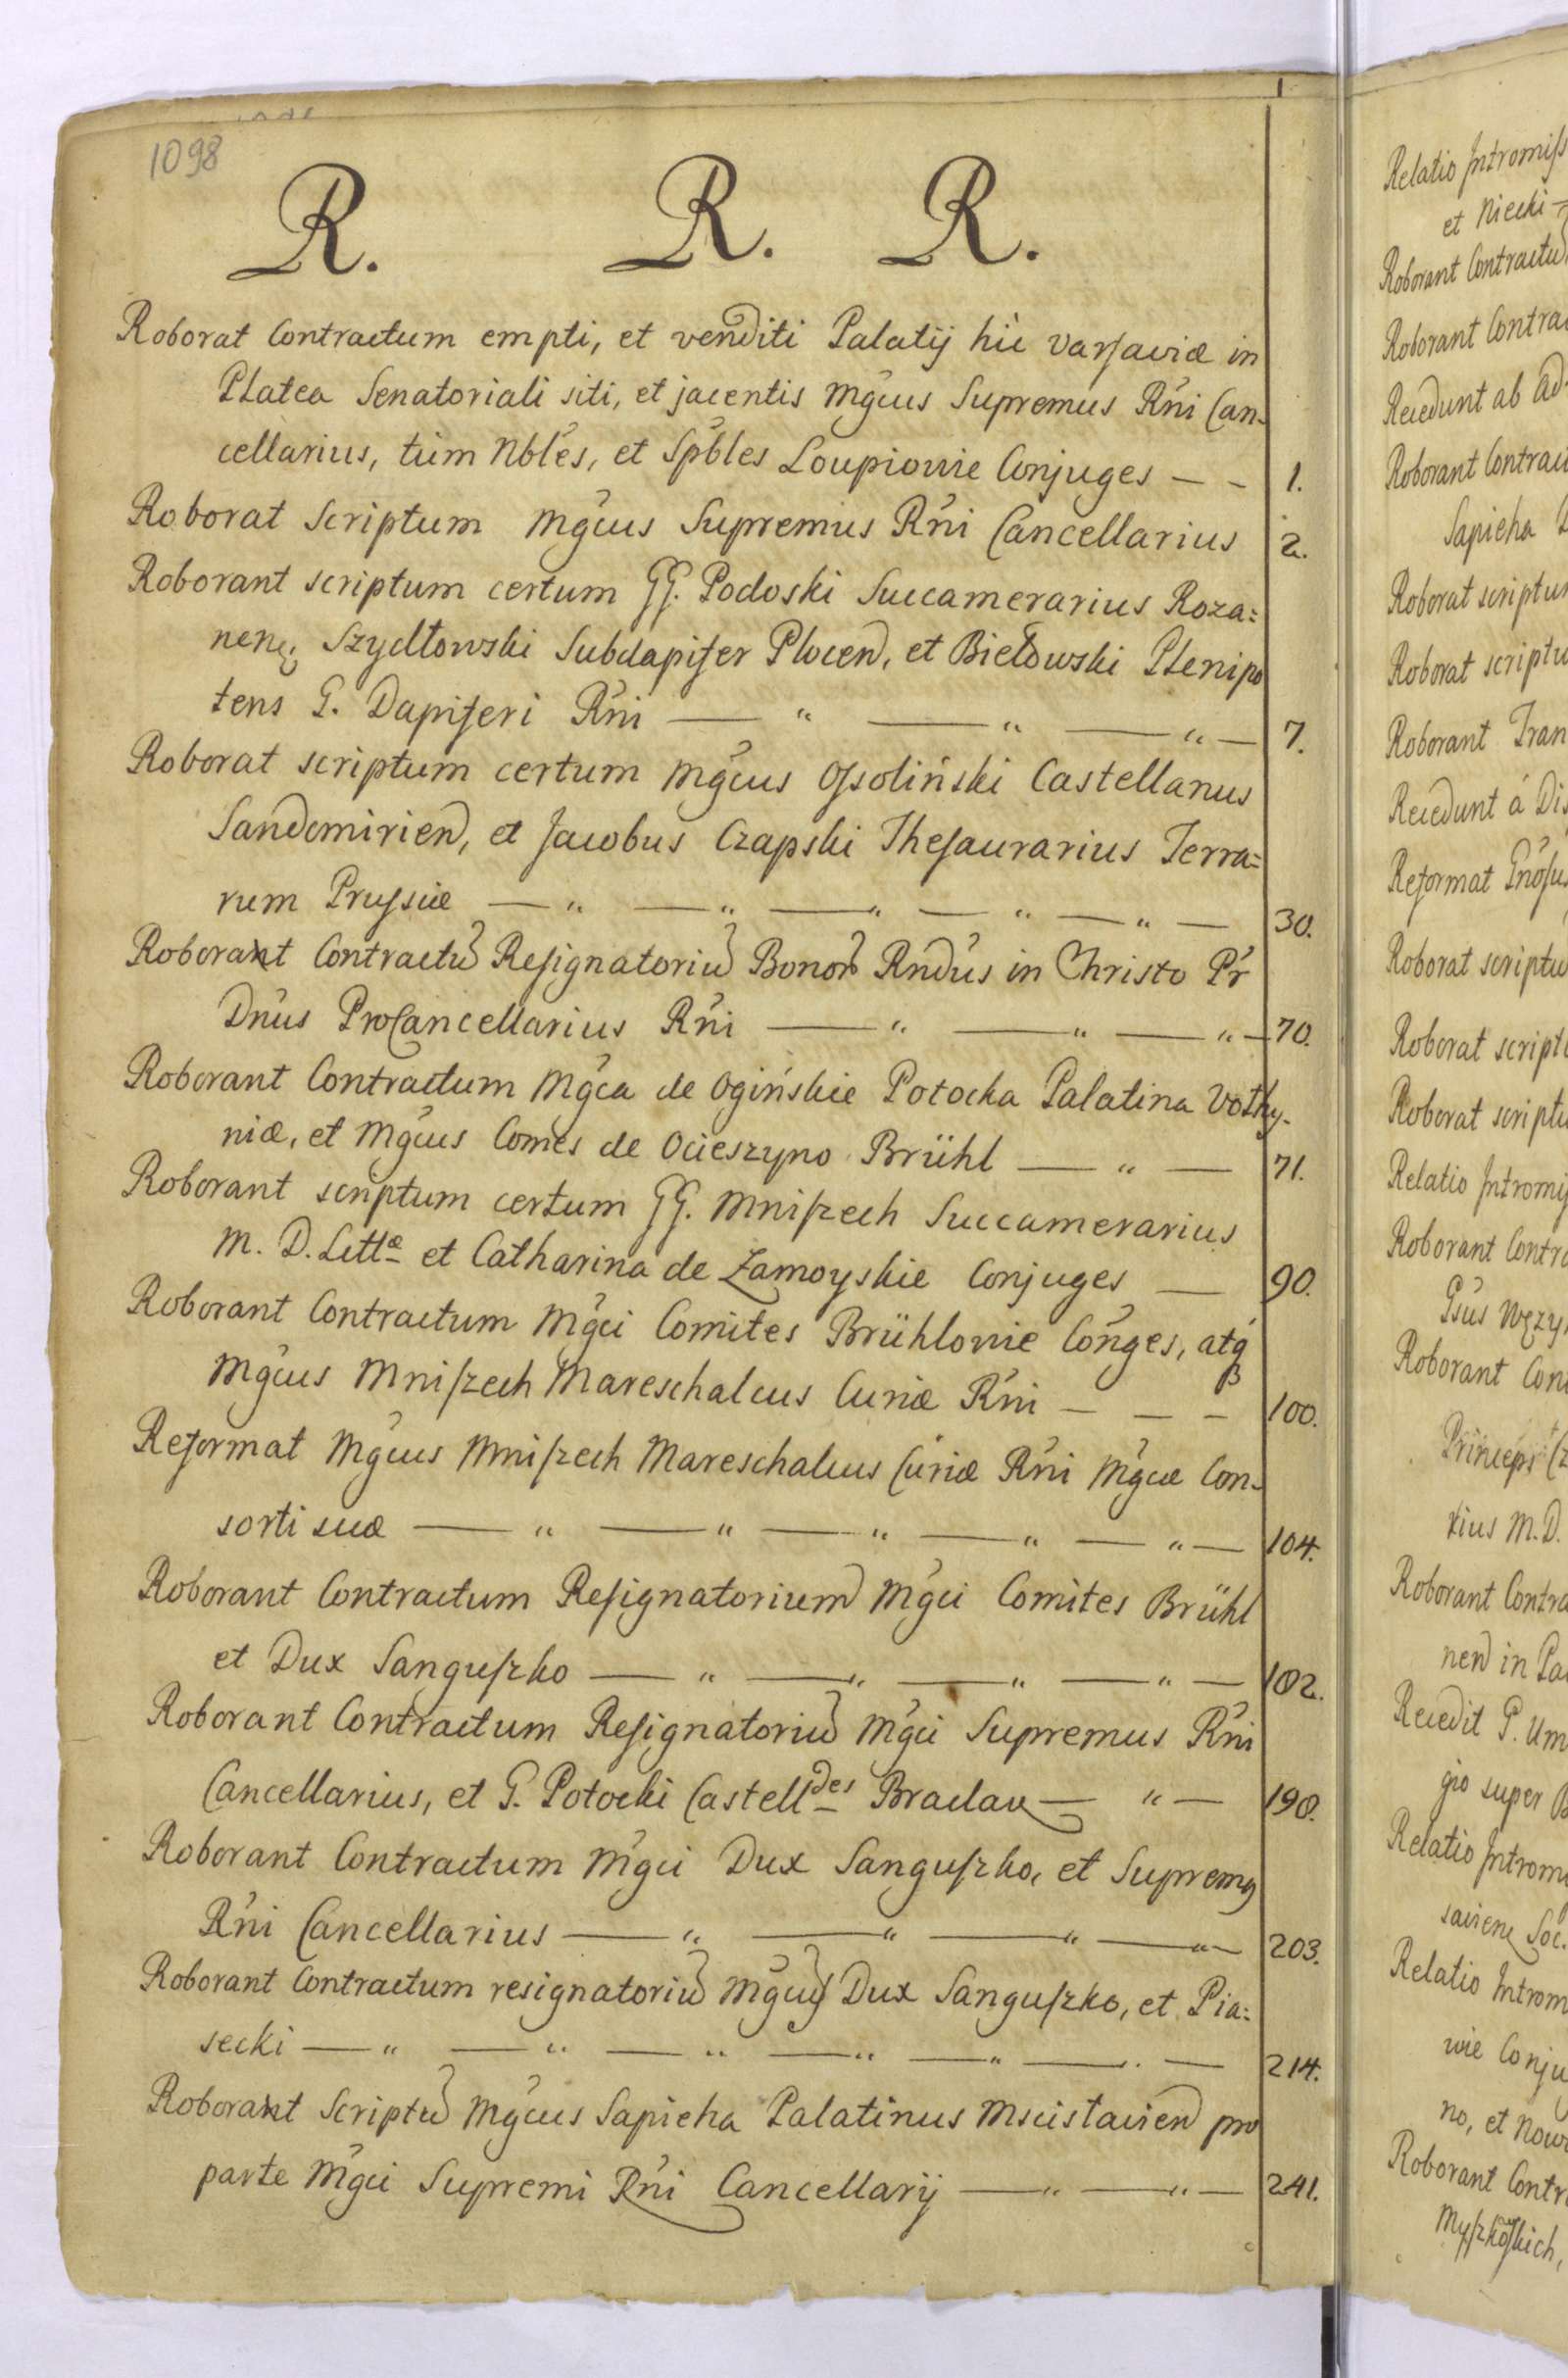 1098
R. R. R.
Roborat Contractum empti, et venditi Palatij hic Varsaviæ in
Platea Senatoriali siti, et jacentis Mgcus Supremus Rni Can-
cellarius, tum Nbles, et Spbles Loupiowie Conjuges — - 1.
Roborat Scriptum Mgcus Supremus Rni Cancellarius 2.
Roborant scriptum certum GG. Podoski Succamerarius Roza=
nen, Szydłowski Subdapifer Plocen, et Bielowski Plenipo
tens G. Dapiferi Rni — " — " — " — 7.
Roborat scriptum certum Mgcus Ossoliński Castellanus
Sandomirien, et Jacobus Czapski Thesaurarius Terra=
rum Prussiæ — " — " — " — " — " — 30.
Roborant Contractu Resignatoriu Bonor Rndus in Christo Pr
Dnus ProCancellarius Rni — " — " — " — 70.
Roborant Contractum Mgca de Ogińskie Potocka Palatina Volhy-
niæ, et Mgcus Comes de Ocieszyno Brühl — " — 71.
Roborant scriptum certum GG. Mniszech Succamerarius
M. D. Littæ et Catharina de Zamoyskie Conjuges — 90.
Roborant Contractum Mgci Comites Brühlowie Conges, atq
Mgcus Mniszech Mareschalcus Curiæ Rni — — - 100.
Reformat Mgcus Mniszech Mareschalcus Curiæ Rni Mgcæ Con-
sorti suæ — " — " — " — " — " — 104.
Roborant Contractum Resignatorium Mgci Comites Brühl
et Dux Sanguszko — " — " — " — " — 102.
Roborant Contractum Resignatoriu Mgci Supremus Rni
Cancellarius, et G. Potocki Castelldes Braclav — " — 190.
Roborant Contractum Mgci Dux Sanguszko, et Supremg
Rni Cancellarius — " — " — " — " — 203.
Roborant Contractum resignatoriu Mgcus Dux Sanguszko, et Pia=
secki — " — " — " — " — " — " — 214.
Roborant Scriptu Mgcus Sapieha Palatinus Mscislavien pro
parte Mgci Supremi Rni Cancellarij — " — " — 241.
Relatio Intromiss
et Niecki —
Roborant Contractu
Roborant Contra
Recedunt ab Ad
Roborant Contrac
Sapieha
Roborat scriptum
Roborat scriptu
Roborant Tran
Recedunt á Dis
Reformat Gnosus
Roborat scriptu
Roborat script
Roborat scriptu
Relatio Intromis
Roborant Contra
Gsus Węzy
Roborant Con
Princeps Cz
rius M.D.
Roborant Contra
nen in Pa
Recedit G. Um
gio super B
Relatio Introm
savien Soc.
Relatio Introm
wie Conju
no, et Now
Roborant Contr
Myszkowskich,